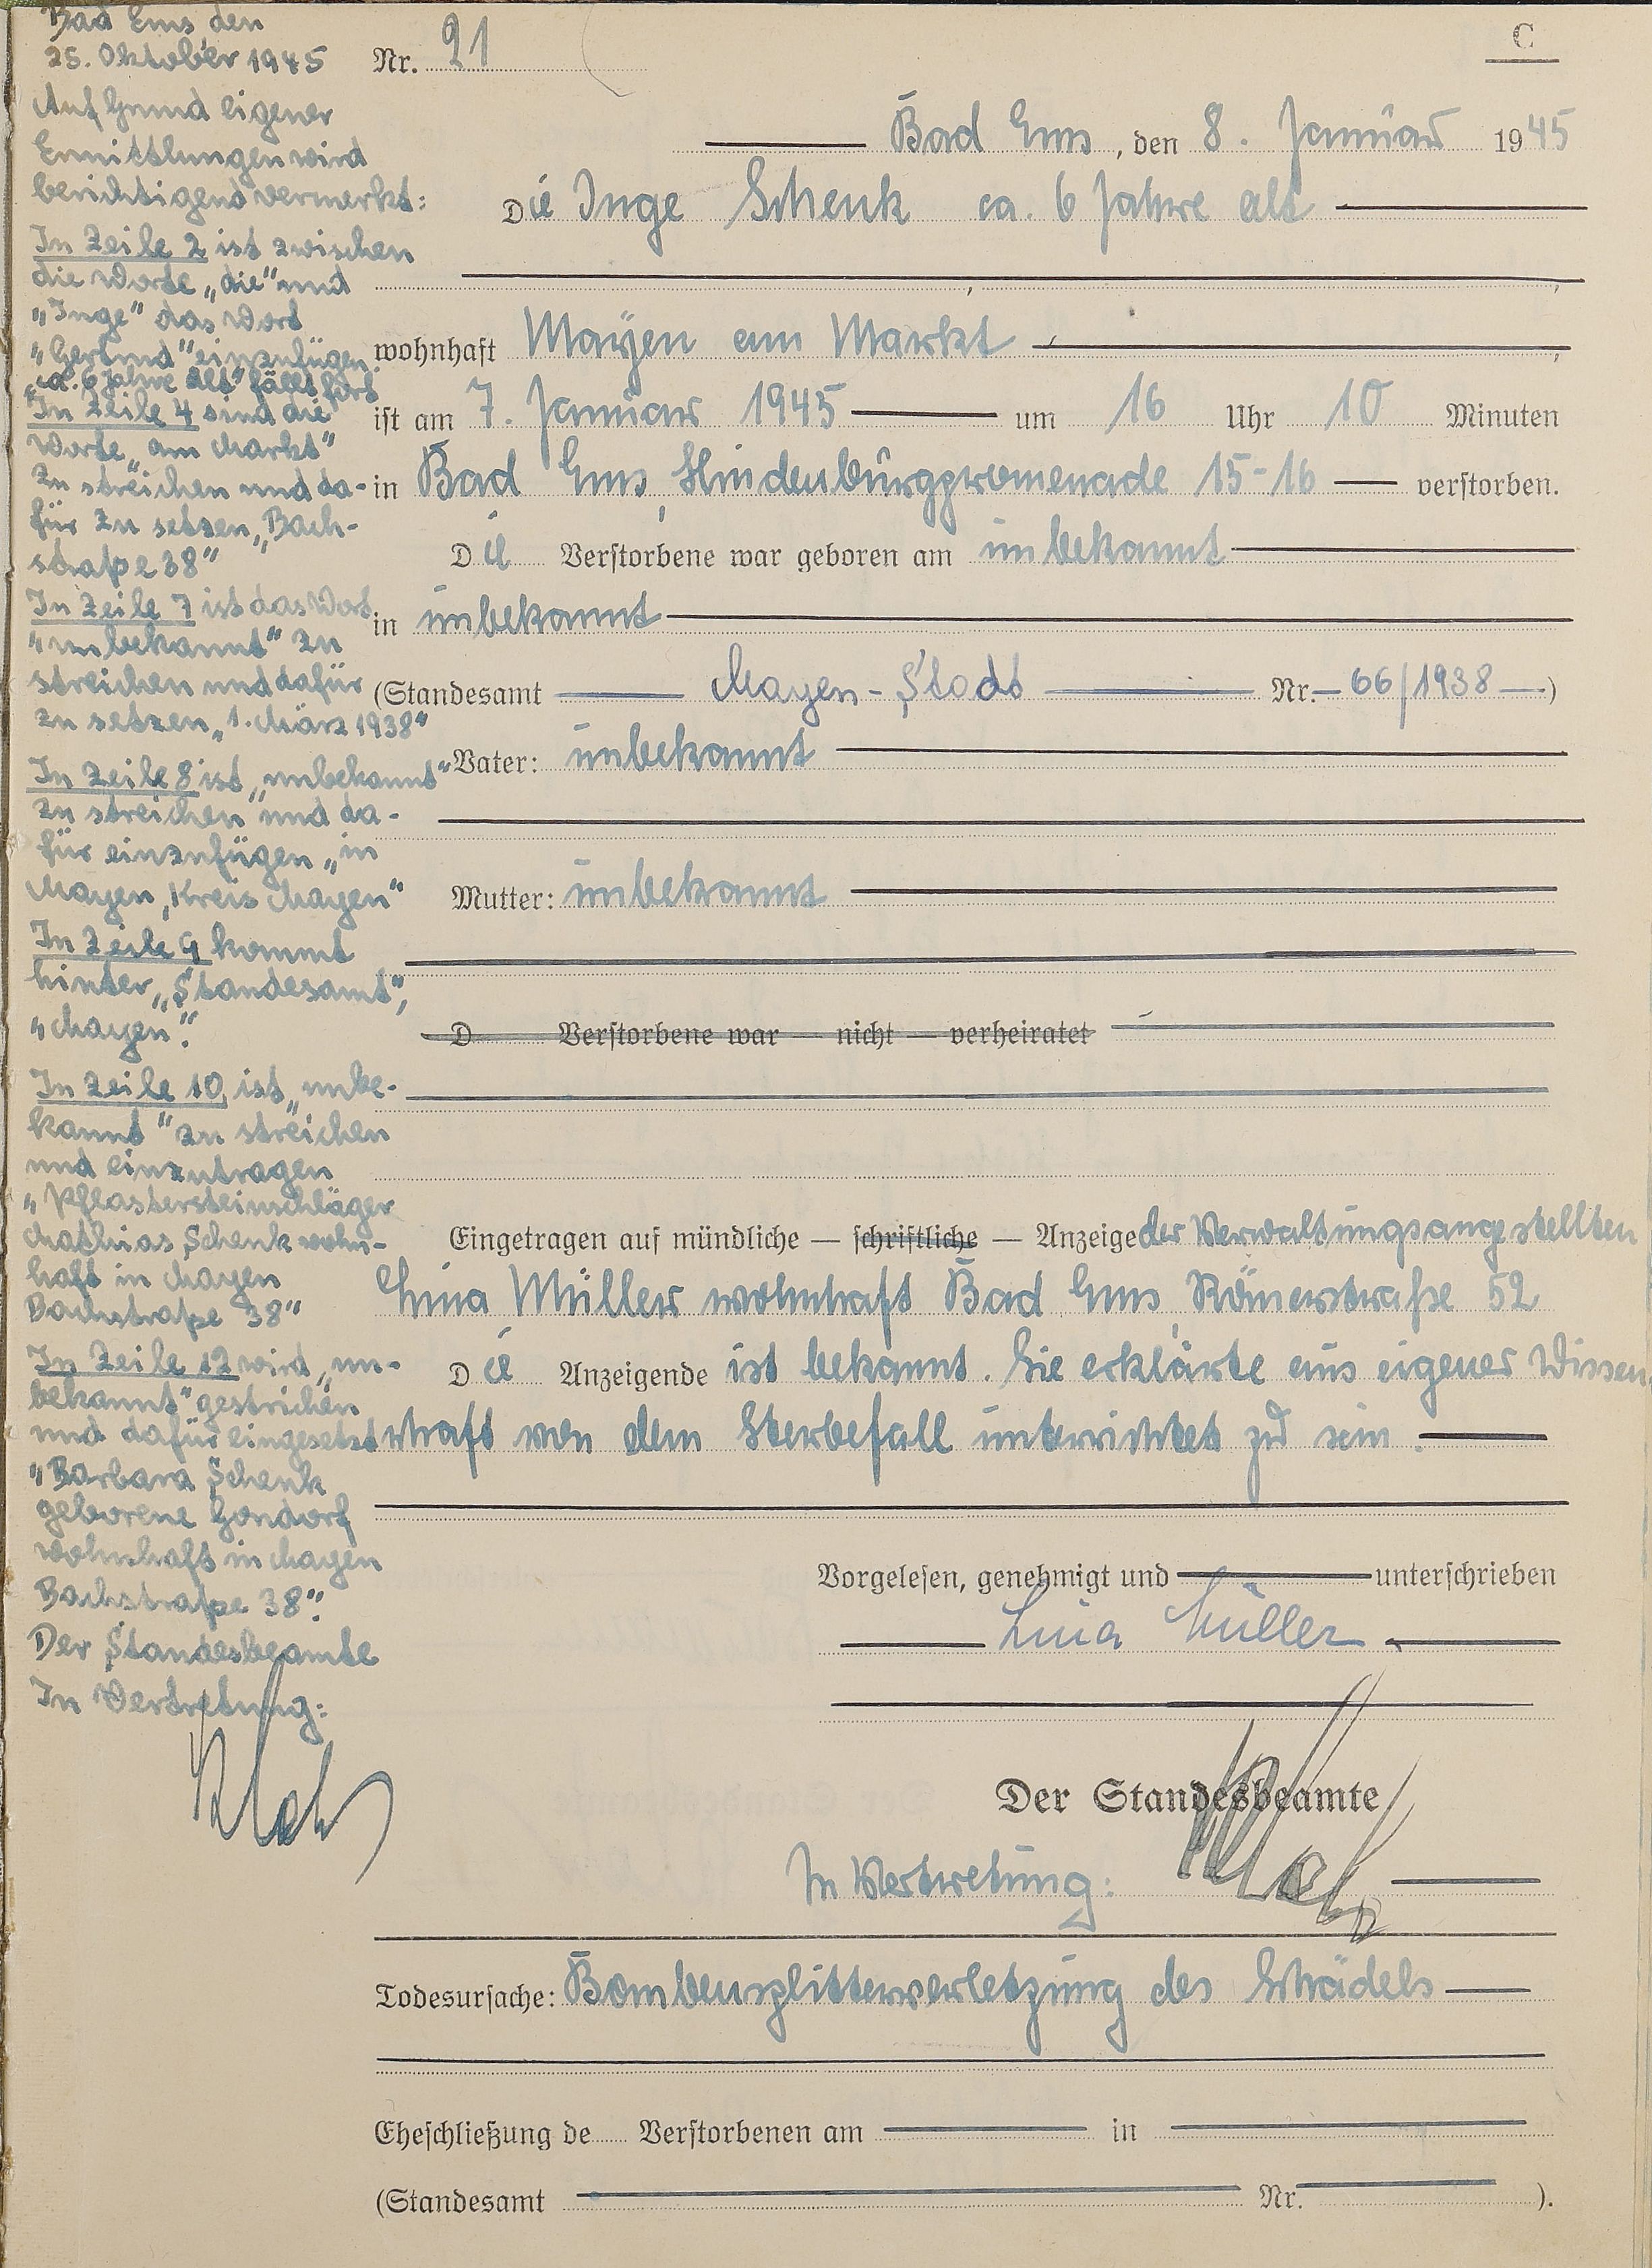 Bad Ems, den
25. Oktober 1945
Auf Grund eigener
Ermittlungen wird
berichtigend vermerkt:
In Zeile 2 ist zwischen
die Worte „die" und
„Inge" das Wort
„Gerlind" einzufügen.
„ca. 6 Jahre alt" fällt fort
In Zeile 4 sind die
Worte „am Markt"
zu streichen und da-
für zu setzen „Bach-
straße 38"
In Zeile 7 ist das Wort
„unbekannt" zu
streichen und dafür
zu setzen „1. März 1938"
In Zeile 8 ist „unbekannt"
zu streichen und da-
für einzufügen „in
Mayen, Kreis Mayen"
In Zeile 9 kommt
hinter „Standesamt",
„Mayen".
In Zeile 10 ist „unbe-
kannt" zu streichen
und einzutragen
„Pflastersteinschläger
Mathias Schenk wohn-
haft in Mayen
Bachstraße 38"
In Zeile 12 wird „un-
bekannt" gestrichen
und dafür eingesetzt
„Barbara Schenk
geborene Gondorf
wohnhaft in Mayen
Bachstraße 38".
Der Standesbeamte
In Vertretung:
C
Nr. 21
Bad Ems, den 8. Januar 1945
Die Inge Schenk ca. 6 Jahre alt
wohnhaft Mayen am Markt
ist am 7. Januar 1945 um 16 Uhr 10 Minuten
in Bad Ems, Hindenburgpromenade 15-16 verstorben.
Die Verstorbene war geboren am unbekannt
in unbekannt
(Standesamt Mayen-Stadt Nr. 66/1938)
Vater: unbekannt
Mutter: unbekannt
D Verstorbene war — nicht — verheiratet
Eingetragen auf mündliche — schriftliche — Anzeige der Verwaltungsangestellten
Lina Müller wohnhaft Bad Ems, Römerstraße 52
Die Anzeigende ist bekannt. Sie erklärte aus eigener Wissen-
schaft von dem Sterbefall unterrichtet zu sein.
Vorgelesen, genehmigt und unterschrieben
Lina Müller
Der Standesbeamte
In Vertretung:
Todesursache: Bombensplitterverletzung des Schädels
Eheschließung de Verstorbenen am in
(Standesamt Nr. ).